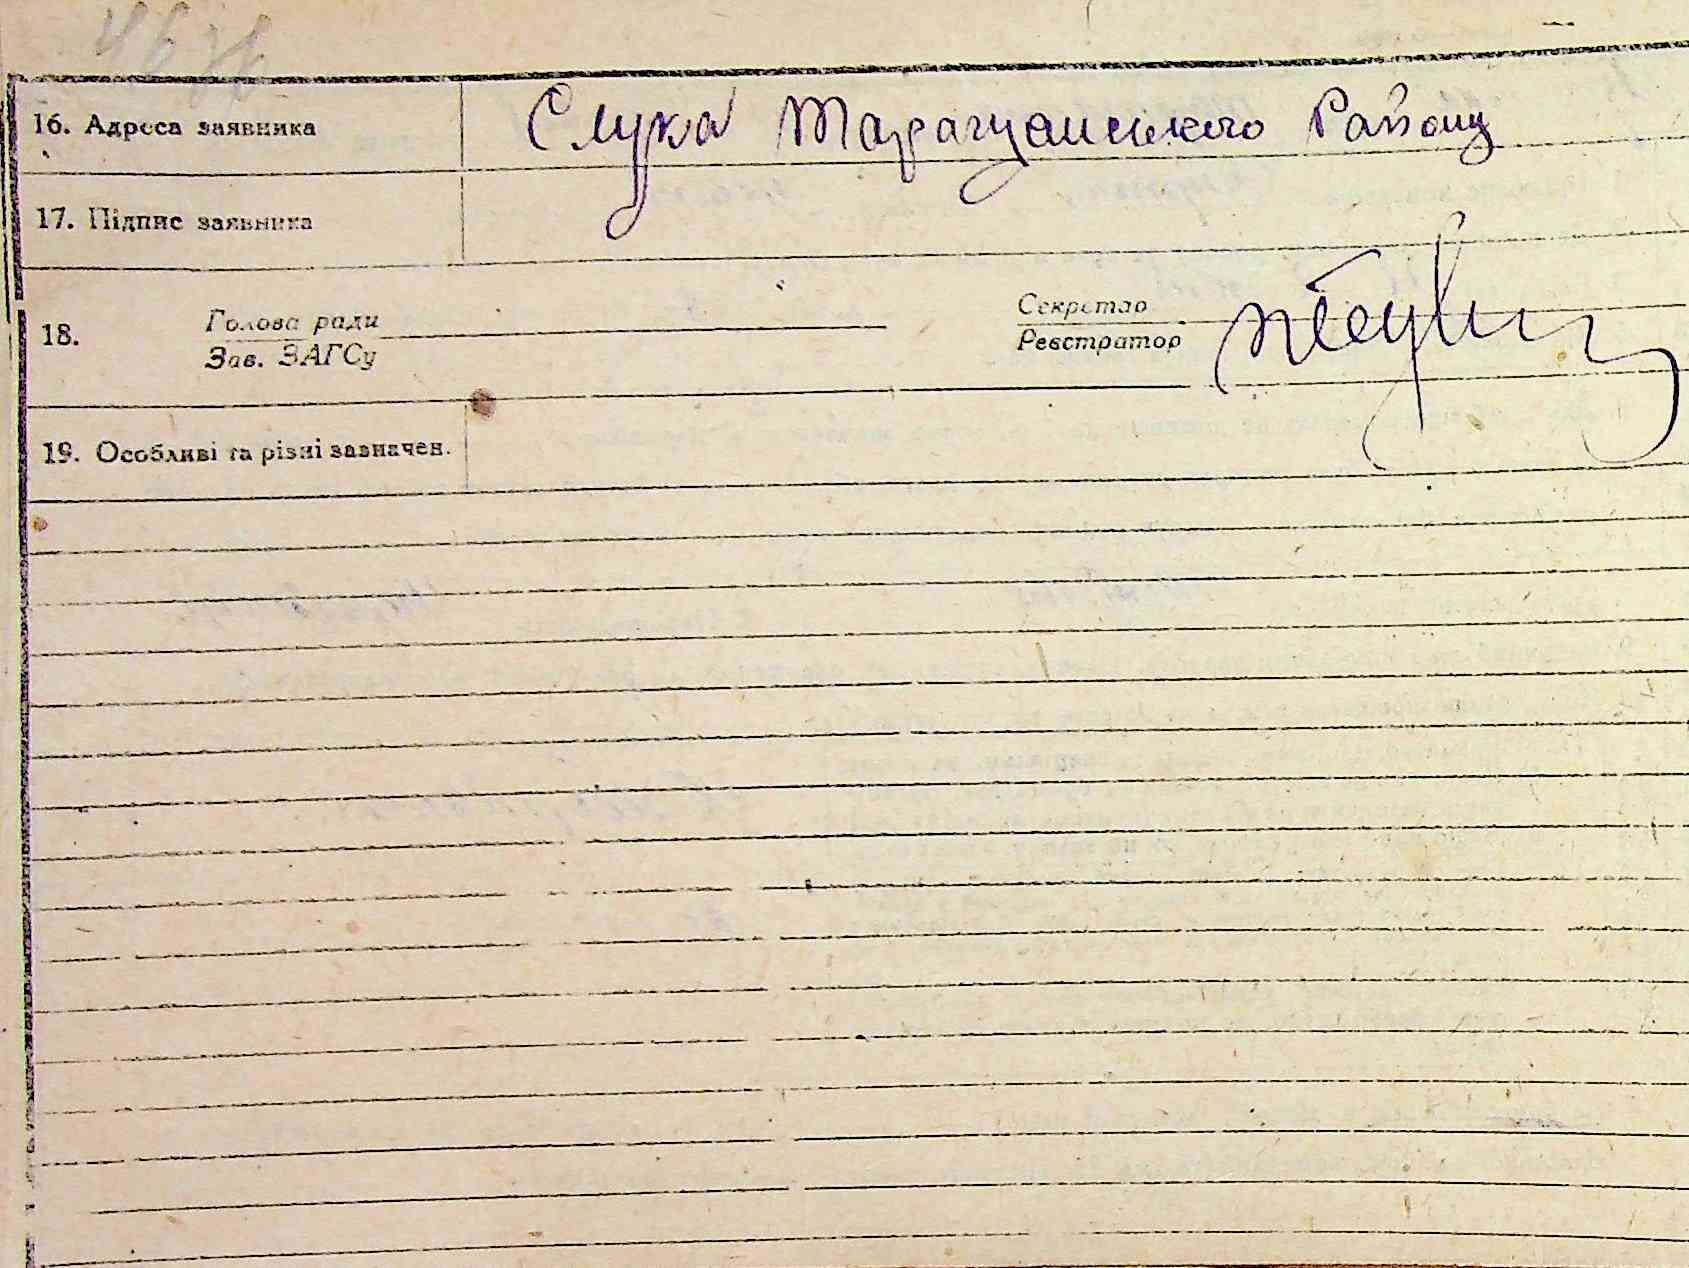 16. Адреса заявника Слука Таращанського Району
17. Підпис заявника
Голова ради Секретар
18.
Зав. ЗАГСу Реєстратор
19. Особливі та різні зазначен.